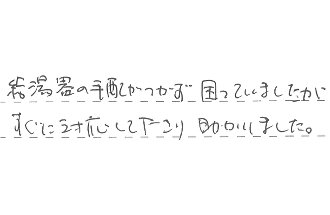 給湯器の手配がつかず 困っていましたが
すぐに対応して下さり 助かりました。